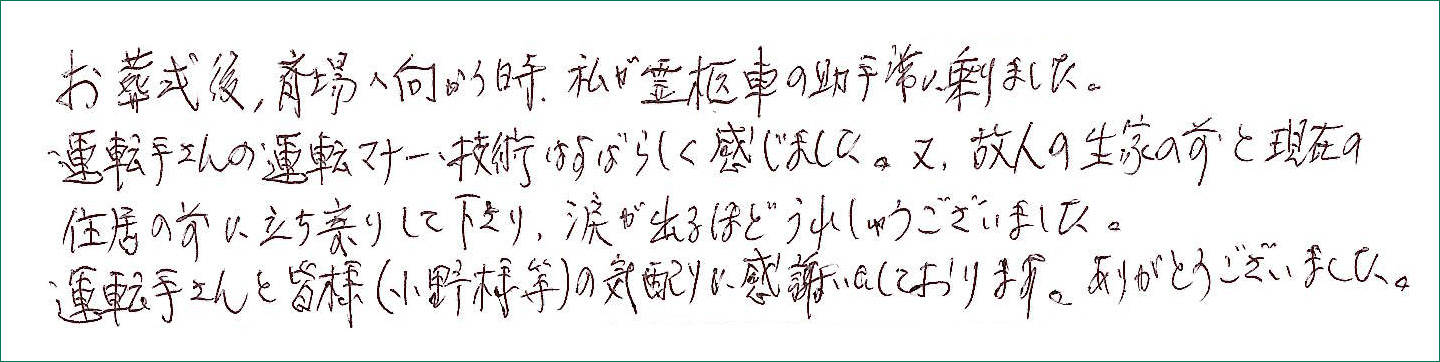 お葬式後,斉場へ向かう時、私が霊柩車の助手席に乗りました。
運転手さんの運転マナー、技術はすばらしく感じました。又、故人の生家の前と現在の
住居の前に立ち寄りして下さり、涙が出るほどうれしゅうございました。
運転手さんと皆様(小野様等)の気配りに感謝いたしております。ありがとうございました。